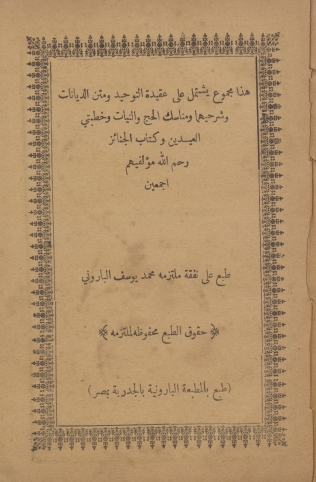 هذا مجموع يشتمل على عقيدة التوحيد ومتن الديانات
وشرحيهما ومناسك الحج والنيات وخطبتي
العيدين وكتاب الجنائز
رحم الله مؤلفيهم
اجمعين
طبع على نفقة ملتزمه محمد يوسف الباروني
﴿ حقوق الطبع محفوظه لملتزمه ﴾
(طبع بالمطبعة البارونية بالجدرية بمصر)